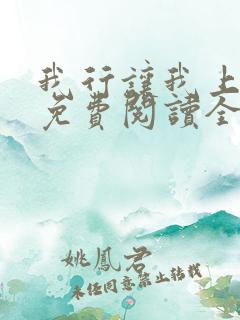 我行讓我上
免費閱讀全
姚鳳君
未經同意禁止轉載